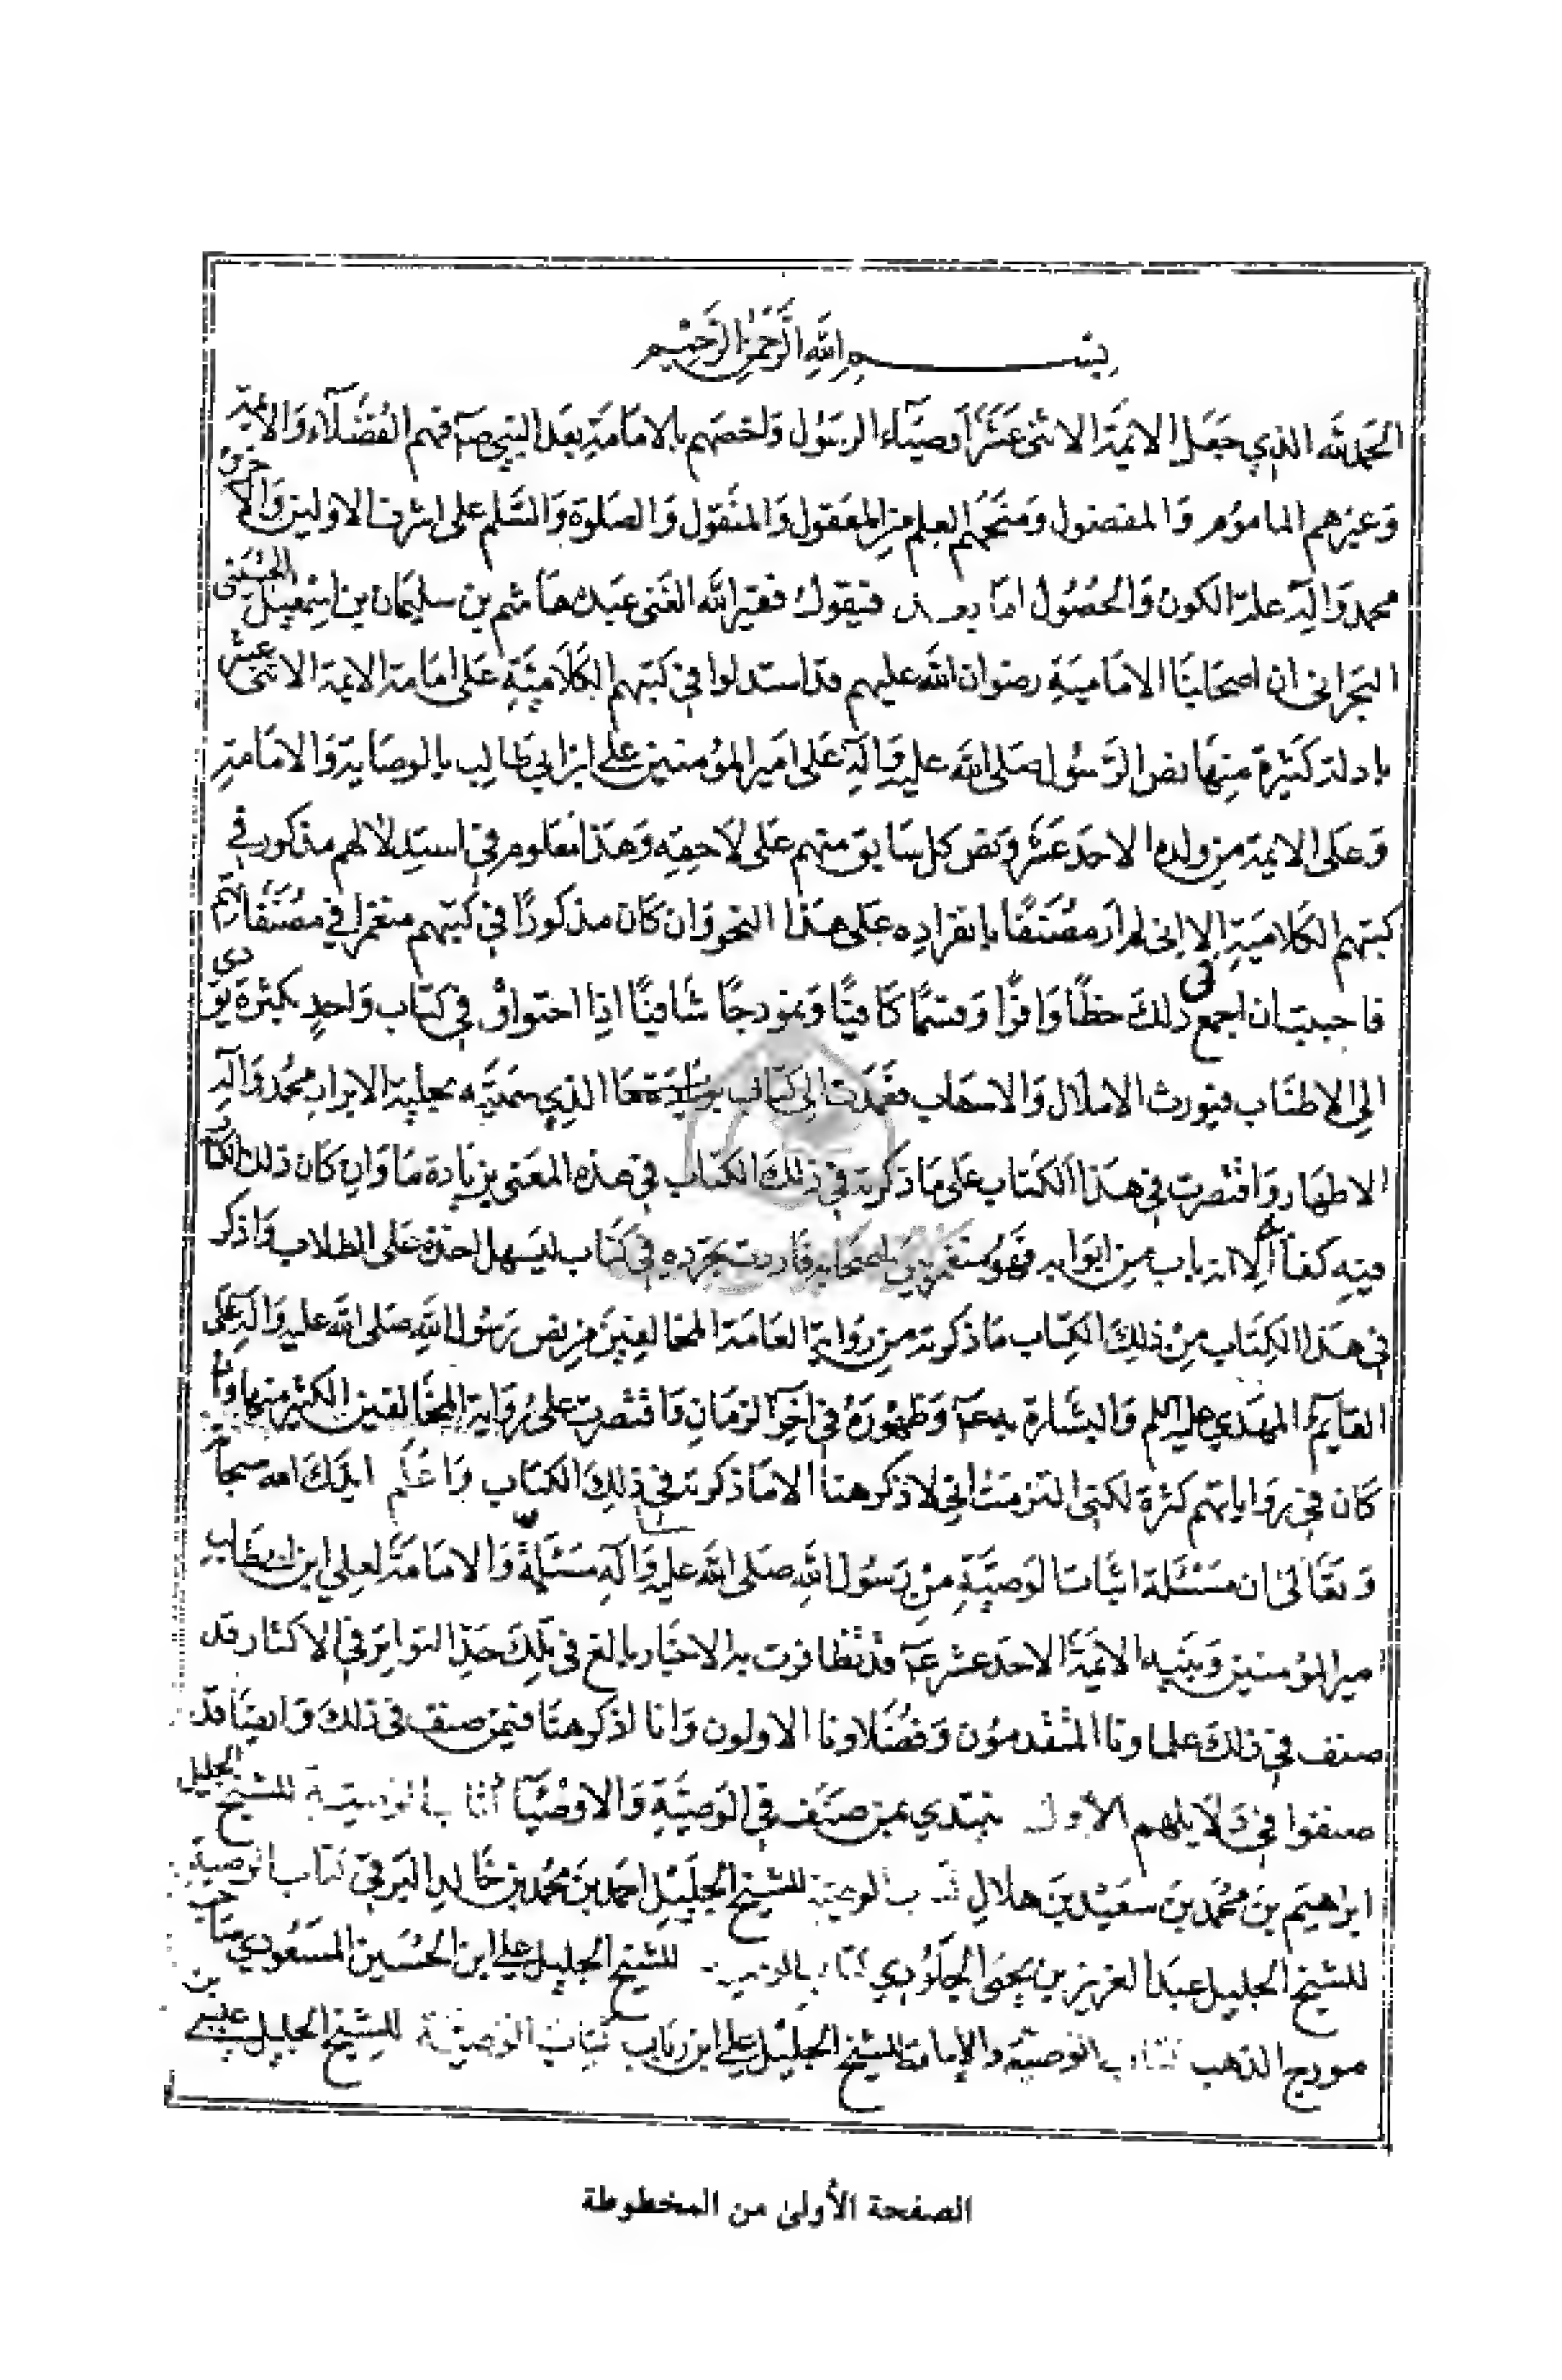 بسم الله الرحمن الرحيم
الحمد لله الذي جعل الائمة الاثنى عشر أوصياء الرسول واختصهم بالامامة بعد النبي ص فهم الفضلاء والائمة
وغيرهم الماموم والمفضول ومنحهم العلم من المعقول والمنقول والصلوة والسلم على اشرف الاولين والاخرين
محمد وآله علة الكون والحصول اما بعد فيقول فقير الله الغنى عبده هاشم بن سليمان بن اسمعيل الحسينى
البحرانى ان اصحابنا الامامية رضوان الله عليهم قد استدلوا في كتبهم الكلامية على امامة الايمة الاثنى عشر
بادلة كثيرة منها نص الرسول صلى الله عليه وآله على امير المؤمنين على ابن ابي طالب بالوصاية والامامة
وعلى الايمة من ولده الاحد عشر ونص كل سابق منهم على لاحقه وهذا معلوم في استدلالهم مذكور في
كتبهم الكلامية الا انى لم ار مصنفا بانفراده على هذا النحو وان كان مذكورا في كتبهم منغمرا في مصنفاتهم
فاحببت ان اجمع في ذلك حظا وافرا وقسما كافيا ونموذجا شافيا اذا احتواؤ في كتاب واحد بكثرة يؤدى
الى الاطناب فيورث الاملال والاسهاب فعمدت الى كتاب الذي سميته بحلية الابرار محمد وآله
الاطهار واقتصرت في هذا الكتاب على ما ذكرته في ذلك الكتاب في هذه المعنى بزيادة ما وان كان ذلك الكتاب
فيه كفا الا انه باب من ابوابه فهو منغمر في اصحابه فاردت تجرده في كتاب ليسهل اخذه على الطلاب واذكر
في هذا الكتاب من ذلك الكتاب ما ذكرته من رواية العامة المخالفين من نص رسول الله صلى الله عليه وآله على
القايم المهدي عليه السلم والبشارة به ع وظهوره في آخر الزمان واقتصرت على رواية المخالفين الكثير منها وان
كان في رواياتهم كثرة لكنى التزمت انى لا ذكر هنا الا ما ذكرته في ذلك الكتاب واعلم ايدك الله سبحانه
وتعالى ان مسئلة اثبات الوصية من رسول الله صلى الله عليه وآله مسئلة والامامة لعلي ابن ابيطالب
امير المؤمنين وبنيه الايمة الاحد عشر ع قد تظافرت به الاخبار بالغ في تلك حد التواتر في الاكثار قد
صنف في ذلك علماونا المتقدمون وفضلاونا الاولون وانا اذكر هنا فيمن صنف في ذلك وايضا قد
صنفوا في دلايلهم الاول نبتدي بمن صنف في الوصية والاوصيا كتاب الوصية للشيخ الجليل
ابراهيم بن محمد بن سعيد بن هلال كتاب الوصية للشيخ الجليل احمد بن محمد بن خالد البرقي كتاب الوصية
للشيخ الجليل عبد العزيز بن يحيى الجلودي كتاب الوصية للشيخ الجليل علي ابن الحسين المسعودي صاحب
مروج الذهب كتاب الوصية والامامة للشيخ الجليل علي ابن رياب كتاب الوصية للشيخ الجليل عيسى بن
الصفحة الأولىٰ من المخطوطة